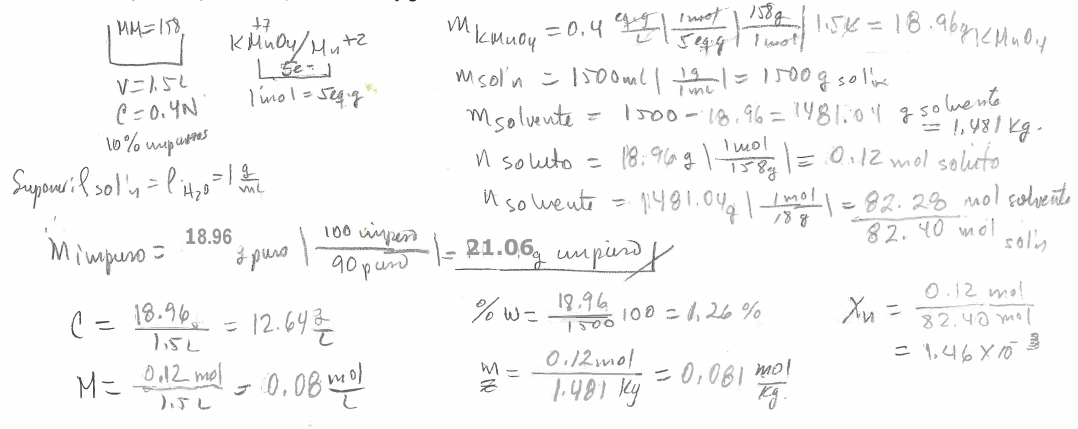 MM=158
V=1.5L
C=0.4N
10% impurezas
+7
KMnO4/Mn+2
5e-
1mol = 5eq.g
Suponer ρ sol'n = ρ H2O = 1 g/mL
m KMnO4 = 0.4 eq.g/L | 1mol/5eq.g | 158g/1mol | 1.5L = 18.96g KMnO4
m sol'n = 1500ml | 1g/1mL | = 1500g sol'n
m solvente = 1500 - 18.96 = 1481.04 g solvente
= 1,481 Kg.
n soluto = 18.96 g | 1mol/158g | = 0.12 mol soluto
n solvente = 1481.04g | 1mol/18g | = 82.28 mol solvente
82.40 mol sol'n
m impuro = 18.96 g puro | 100 impuro/90 puro | = 21.06 g impuro
C = 18.96/1.5L = 12.64 g/L
M = 0.12 mol/1.5L = 0.08 mol/L
% W = 18.96/1500 100 = 1,26 %
m = 0.12mol/1.481 Kg = 0,081 mol/Kg.
Xn = 0.12 mol/82.40 mol
= 1.46 × 10-3